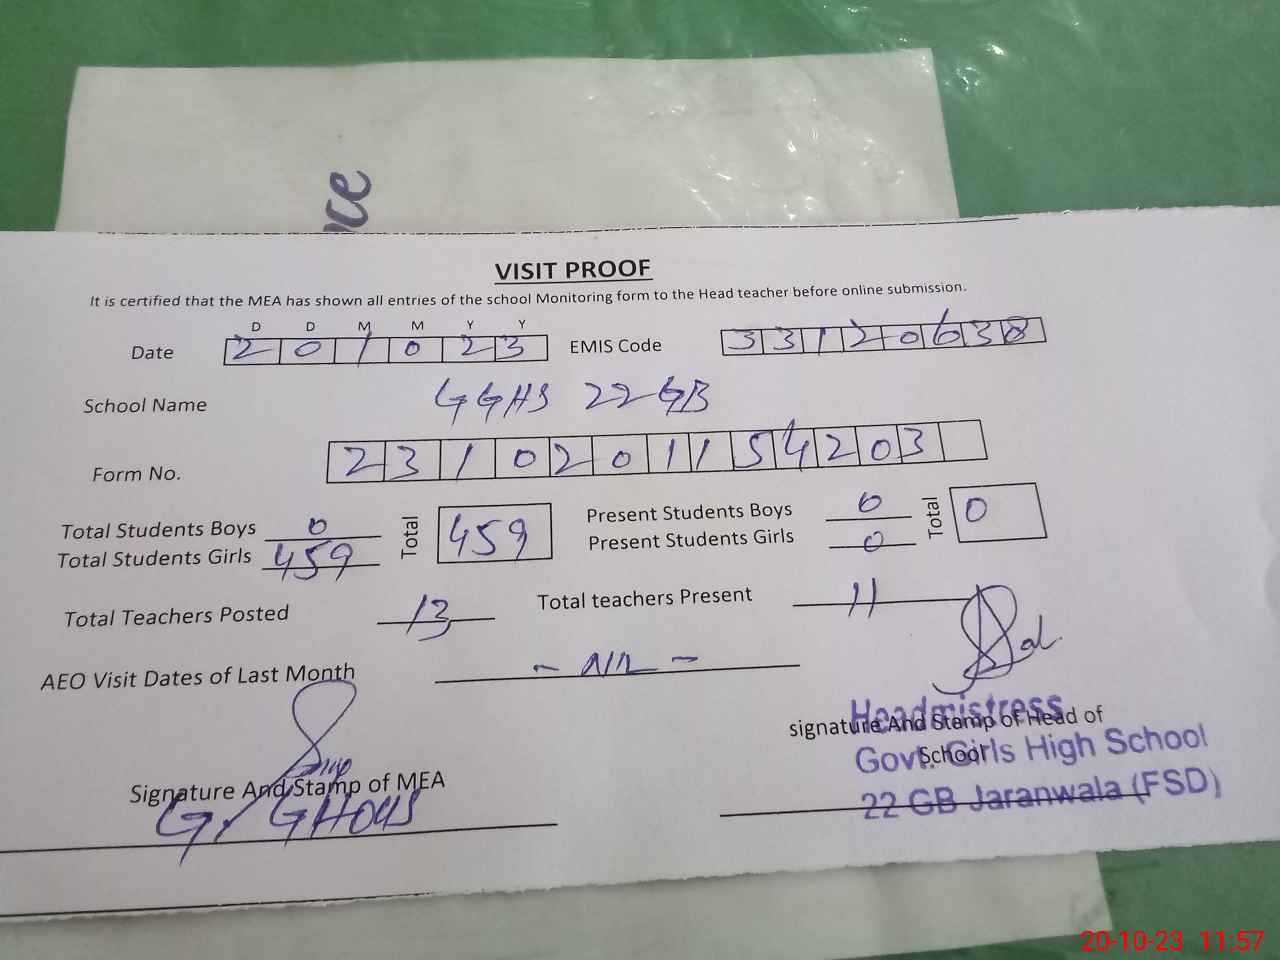 nce
VISIT PROOF
It is certified that the MEA has shown all entries of the school Monitoring form to the Head teacher before online submission.
D D M M Y Y
Date 2 0 1 0 2 3 EMIS Code 3 3 1 2 0 6 3 8
School Name GGHS 22 GB
Form No. 2 3 1 0 2 0 1 1 5 4 2 0 3
Total Students Boys 0 Total 459 Present Students Boys 0 Total 0
Total Students Girls 459 Present Students Girls 0
Total Teachers Posted 13 Total teachers Present 11
AEO Visit Dates of Last Month - NIL -
Signature And Stamp of MEA
G/GHous
signature And Stamp of Head of
School
Headmistress
Govt. Girls High School
22 GB Jaranwala (FSD)
20-10-23 11:57